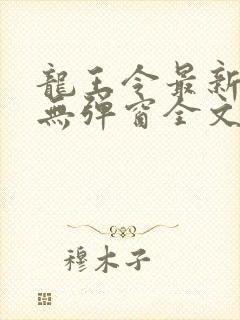 龍王令最新
無彈窗全文
穆木子